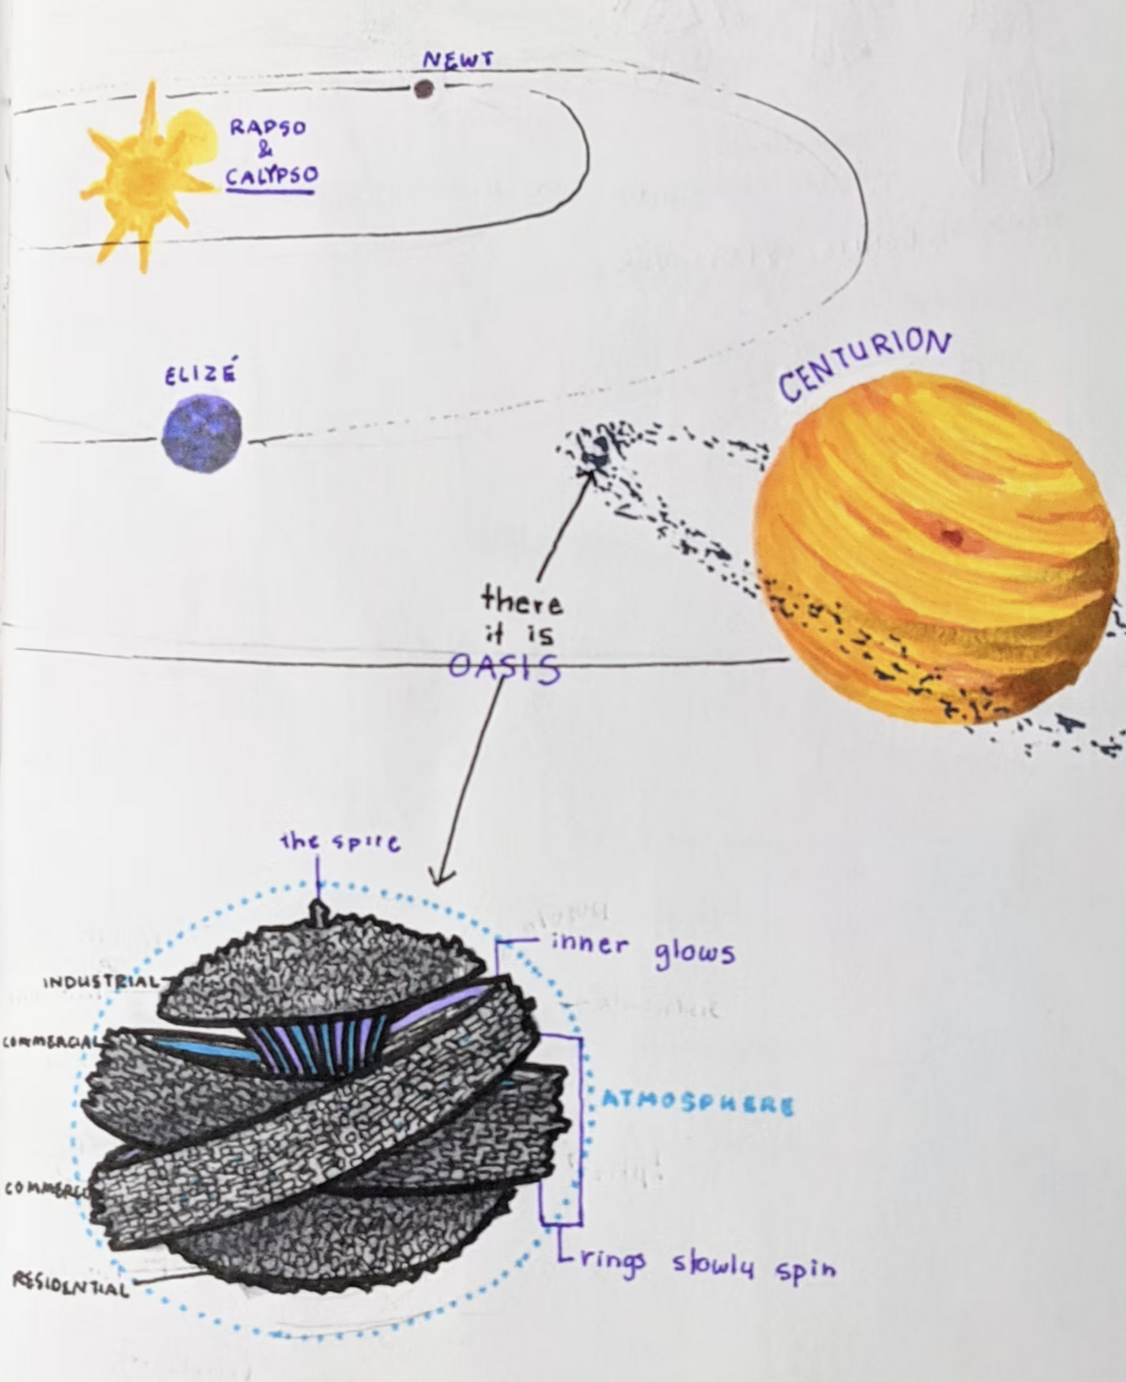 NEWT
RAPSO
&
CALYPSO
ELIZÉ
CENTURION
there
it is
OASIS
the spire
inner glows
INDUSTRIAL
COMMERCIAL
ATMOSPHERE
RESIDENTIAL
rings slowly spin